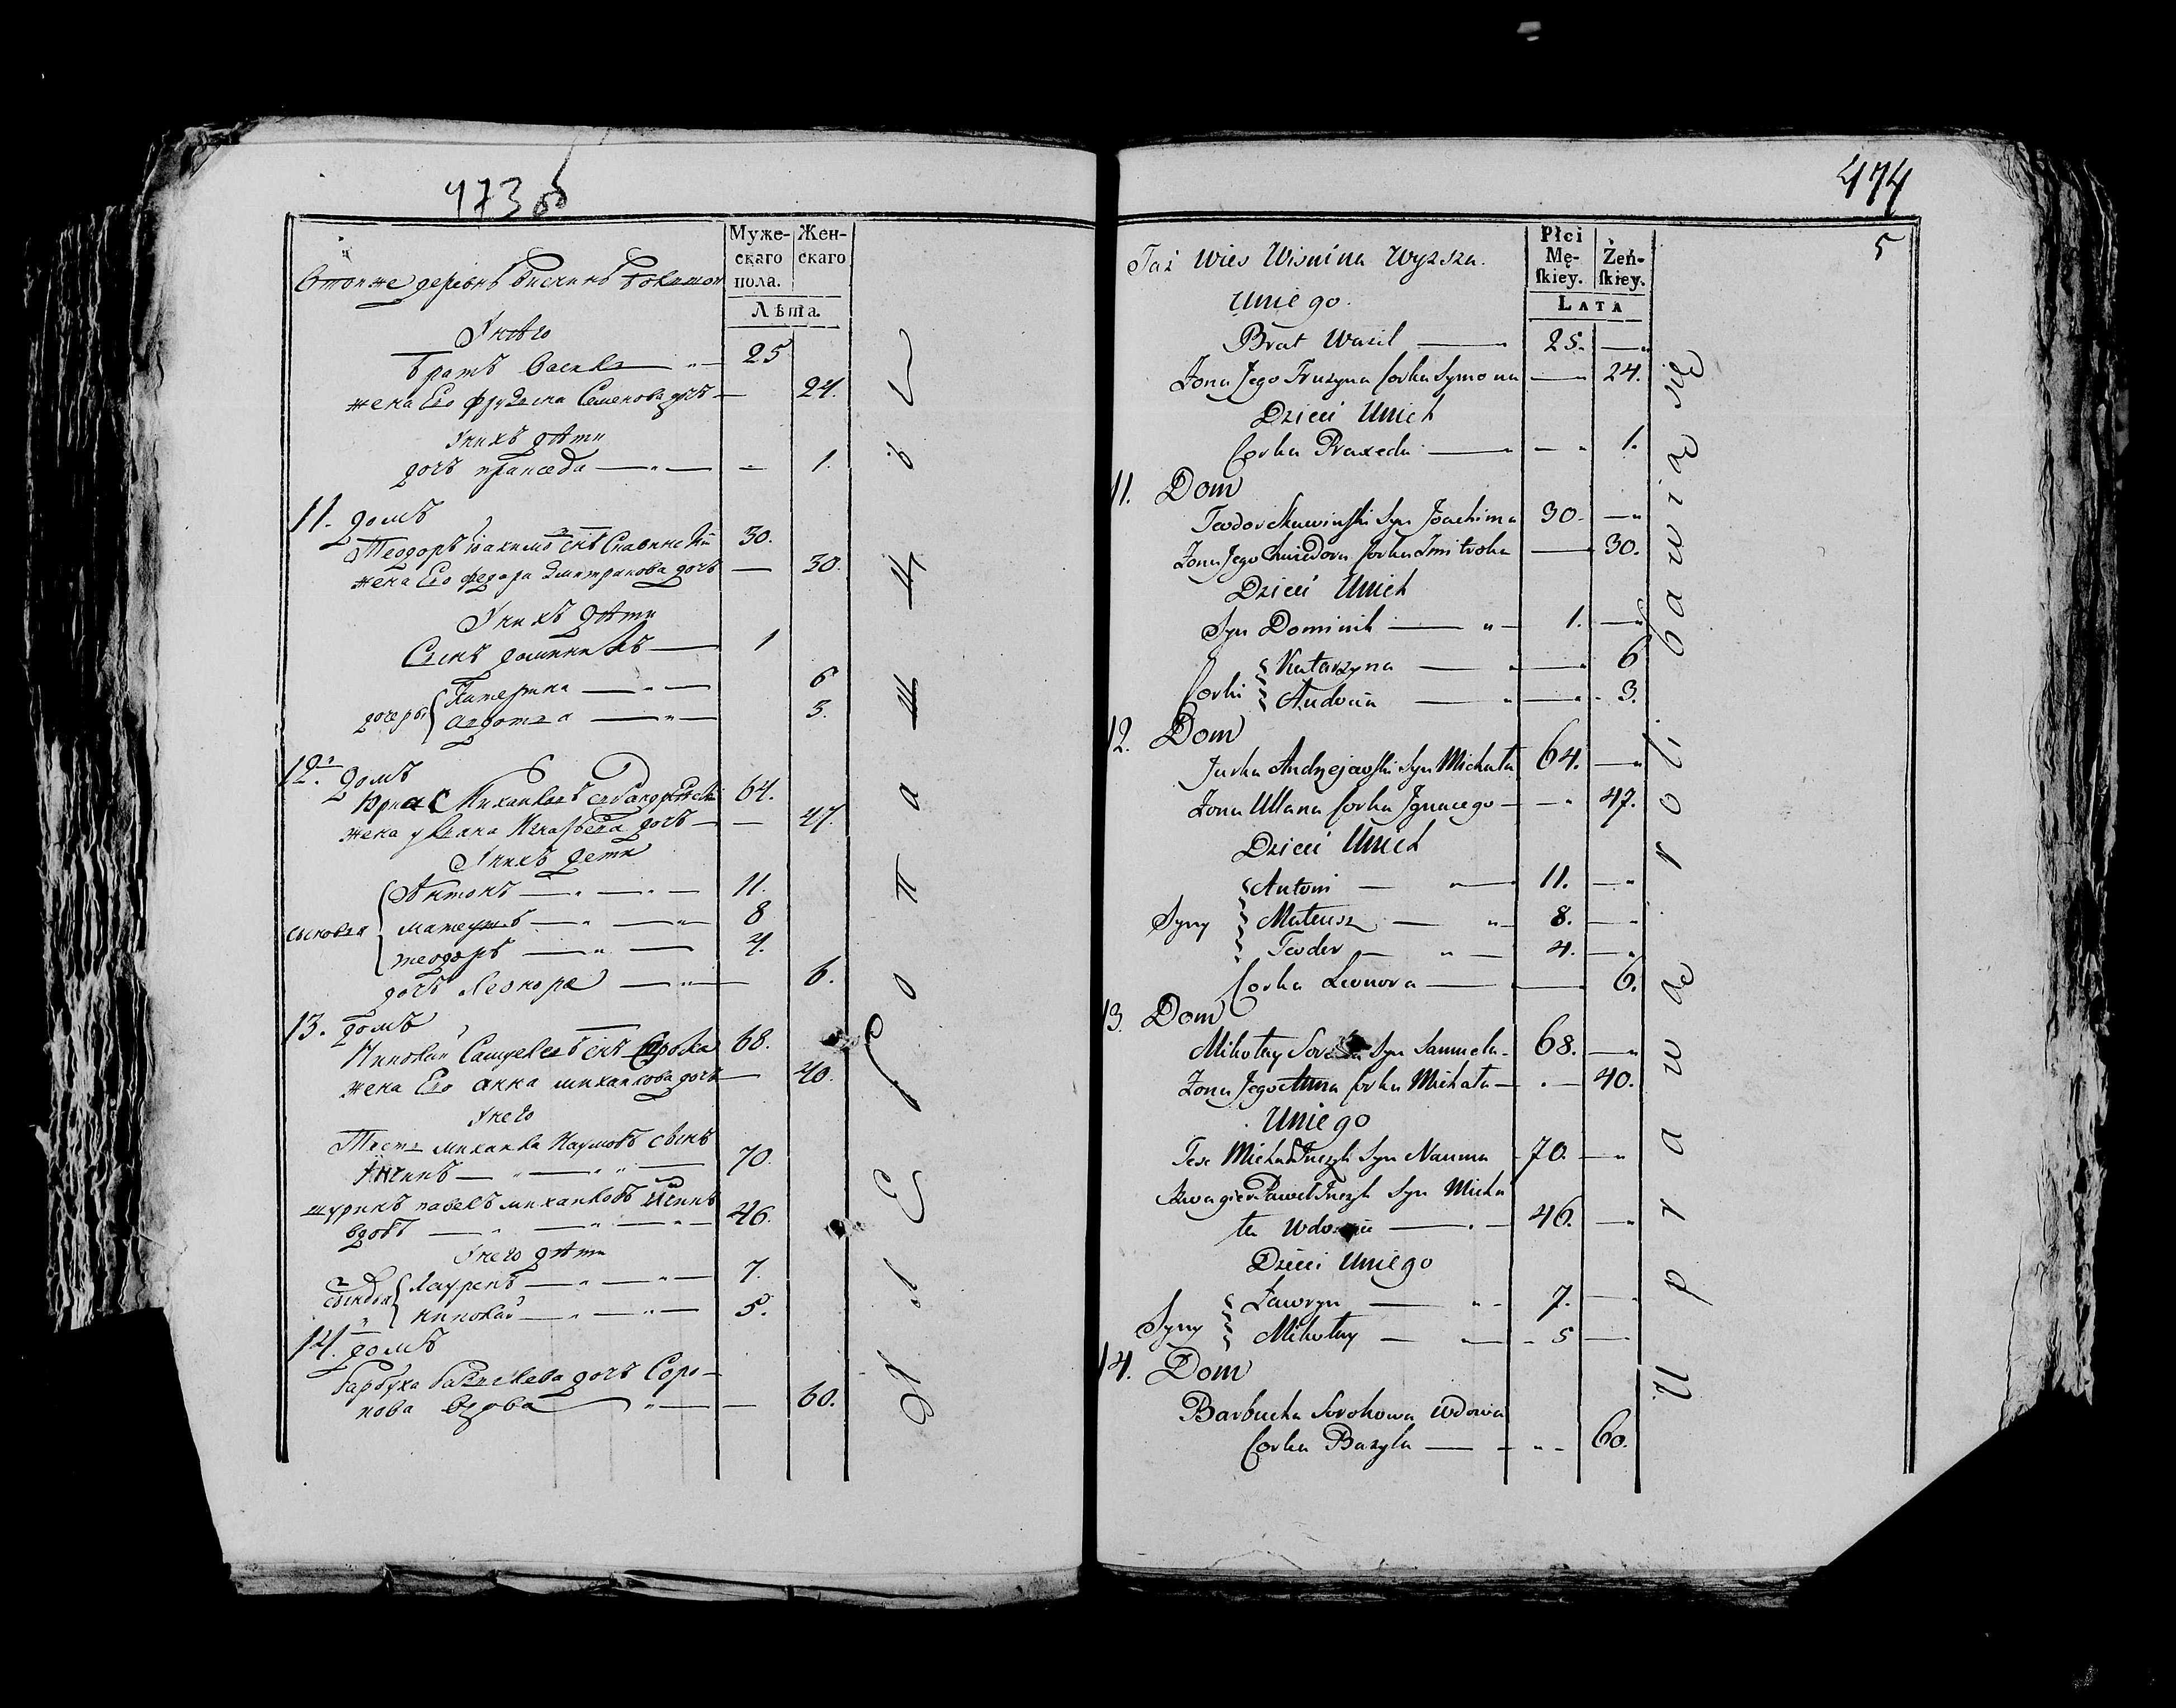 473 об
Муже-
скаго
пола.
Жен-
скаго
Лѣта.
У него
братъ Василь 25
жена Его Фрузына Семенова дочь 24.
У нихъ дѣти
дочь праксѣда 1.
11. домъ
Теодоръ іоахимо сынъ Славинскій 30.
жена Его федора Дмитракова дочь 30.
У нихъ дѣти
Сынъ доминикъ 1
дочеры { Катерына 6
3.
12. домъ
64.
жена ульяна Игнатьева дочь 47.
У нихъ дети
сыновья { Антонъ 11.
матеушъ 8
теодоръ 4.
дочь Леонора 6.
13. домъ
Николай Самуелевъ сынъ Сорока 68.
жена Его анна михайлова дочь 40.
У него
Тесть михайла Наумовъ сынъ
70.
шуринъ павелъ михайловъ
вдовъ 46.
У него дѣти
сыновья { Лауренъ 7.
николай 5.
14. домъ
Барбуха Базылева дочь Соро-
кова вдова 60.
474
5
Płci
Mę-
skiey.
Żeń-
skiey.
LATA
Taż Wieś Wisnina Wyzsza.
U niego.
Brat Wasil 25.
Zona Jego Fruzyna Corka Symona 24.
Dzieci U nich
Corka Praxeda 1.
11. Dom
Teodor Skawinski Syn Joachima 30.
Zona Jego Chwiedora Corka Dmitroka 30.
Dzieci U nich
Syn Dominik 1.
Corki { Katarzyna 6
Audocia 3.
12. Dom
Jurka Andrzejewski Syn Michała 64.
Zona Ullana Corka Jgnacego 47.
Dzieci U nich
Syny { Antoni 11.
Mateusz 8.
Teodor 4.
Corka Leonora 6.
13. Dom
Mikołay Soroka Syn Samuela 68.
Zona Jego Anna Corka Michała 40.
U niego
Teść Michał Syn Nauma 70.
Szwagier Paweł Syn Micha
ła Wdowiec 46.
Dzieci U niego
Syny { Ławryn 7.
Mikołay 5
14. Dom
Barbucha Sorokowa Wdowa
Corka Bazyla 60.
Uprawą roli bawią się